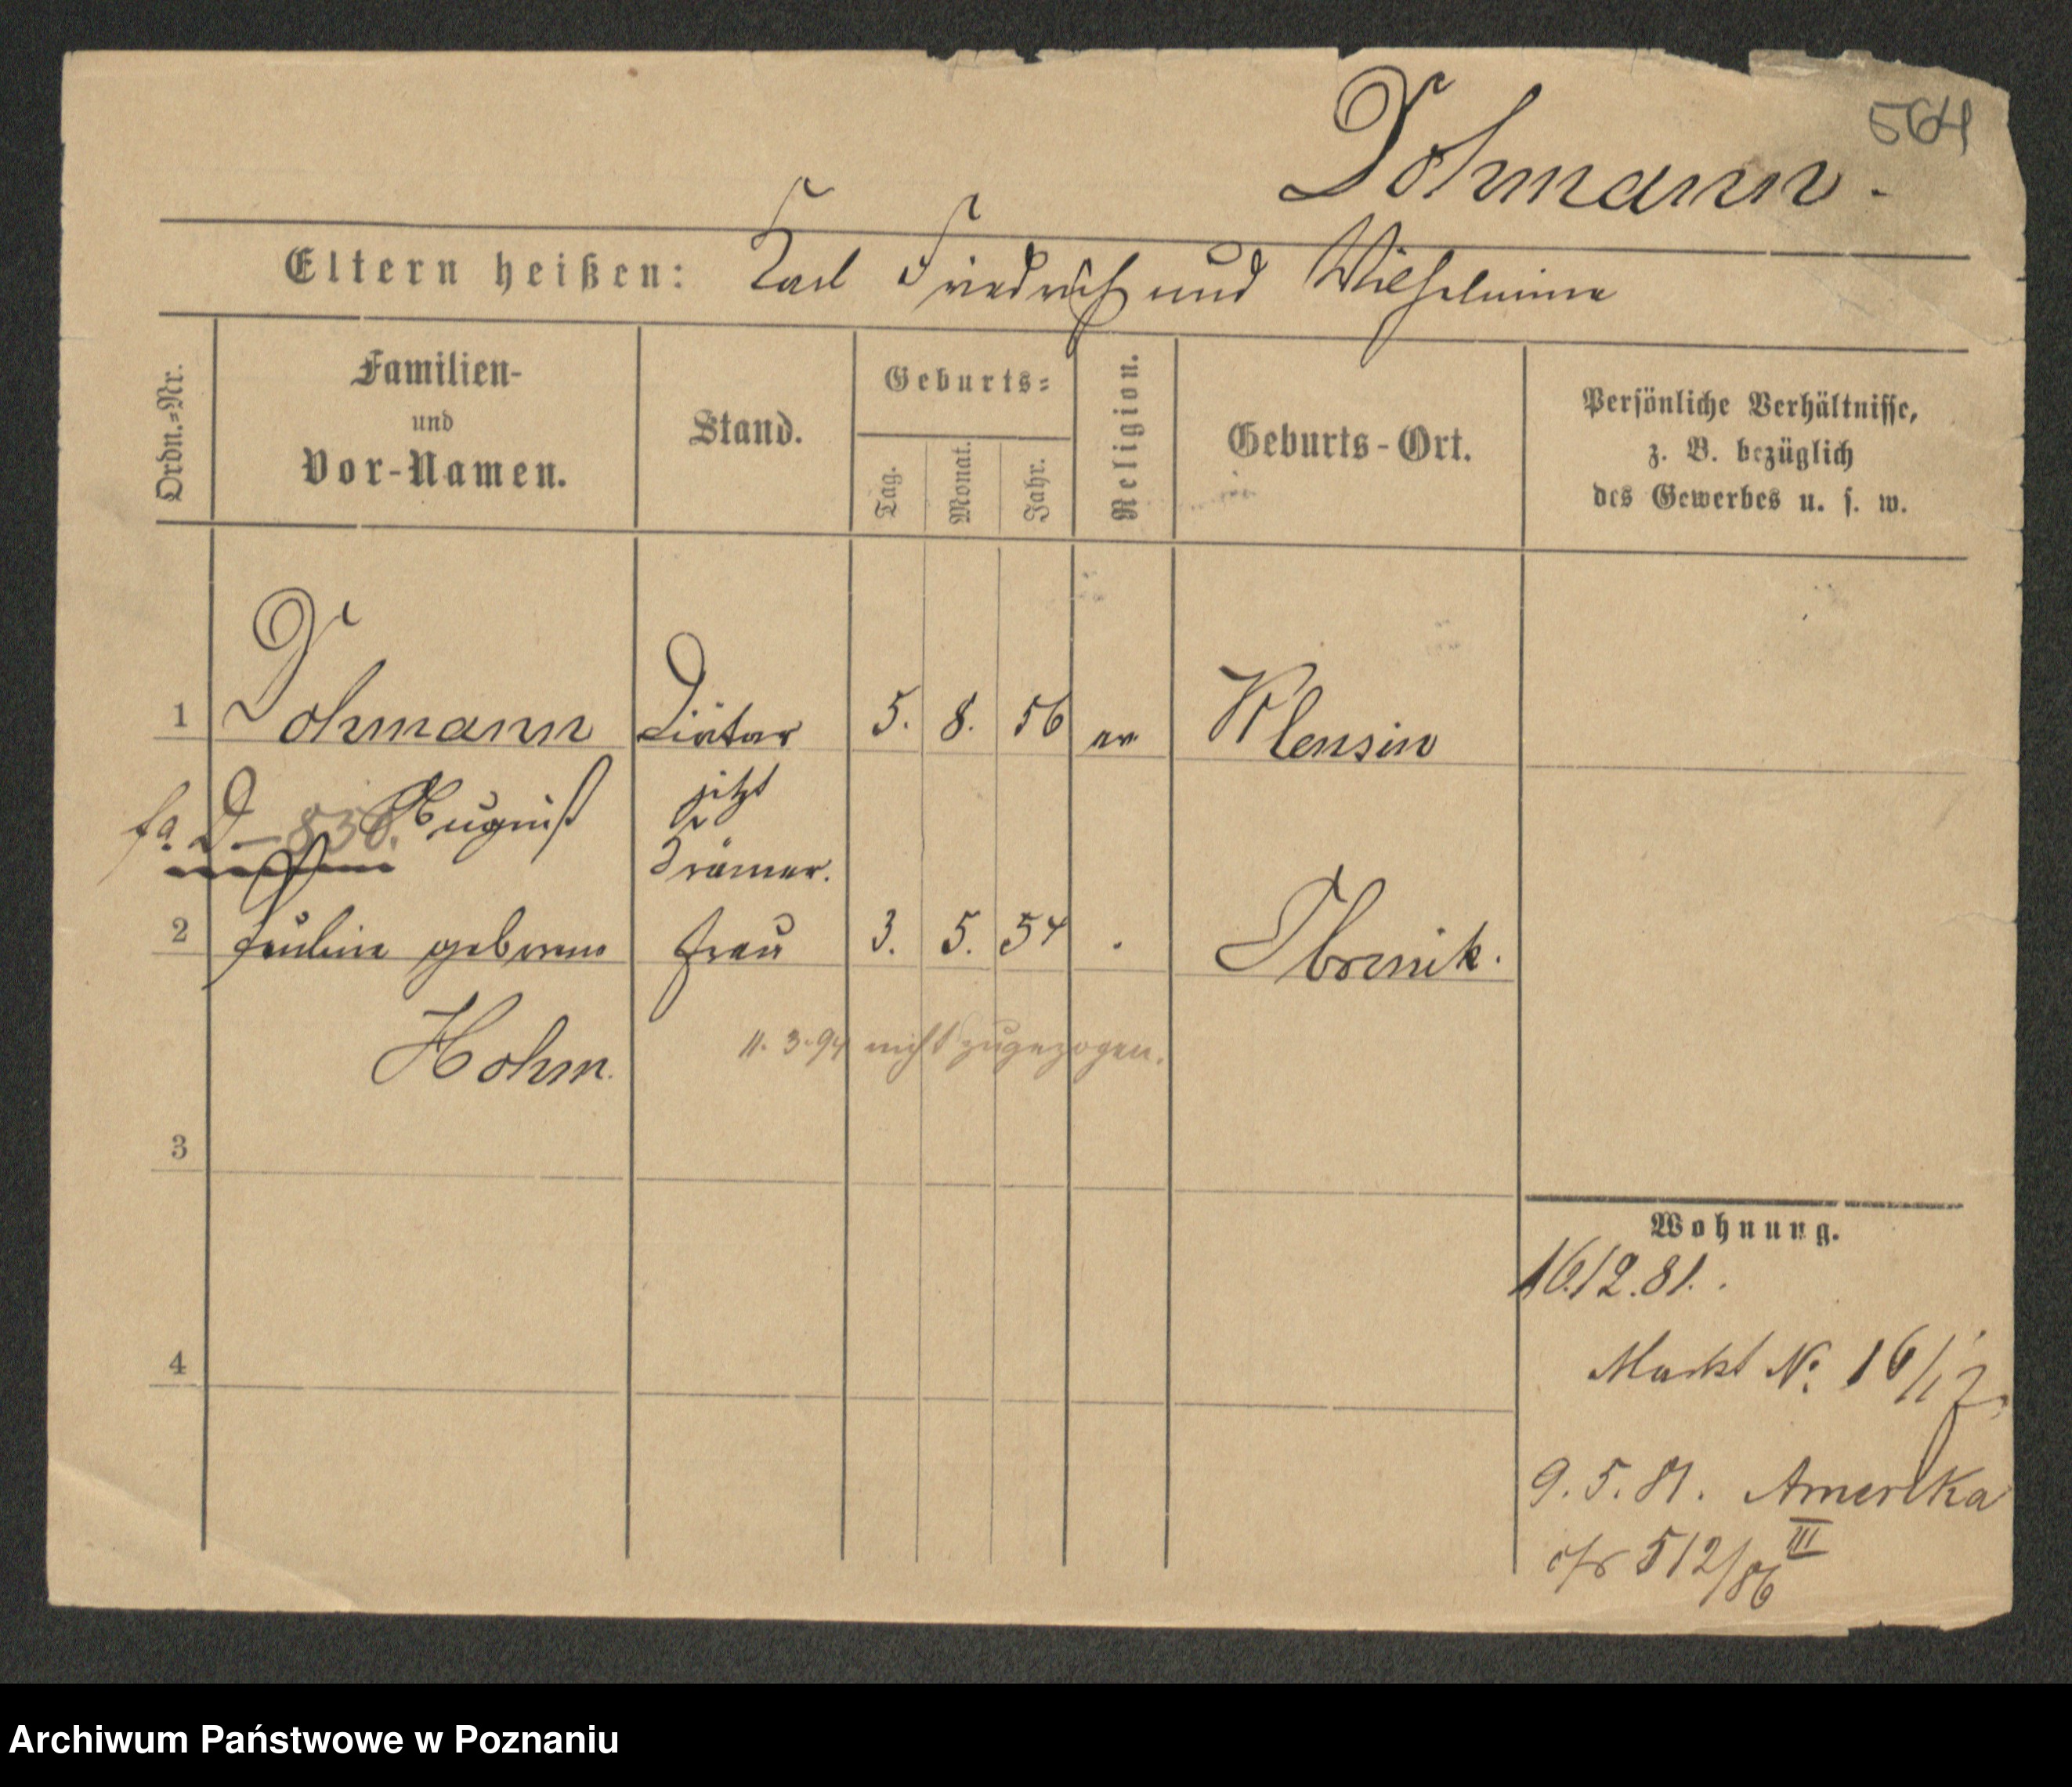 564
Dohmann.
Eltern heißen: Karl Friedrich und Wilhelmine
Ordn.=Nr.
Familien-
und
Vor-Namen.
Stand.
Geburts=
Tag.
Monat.
Jahr.
Religion.
Geburts-Ort.
Persönliche Verhältnisse,
z. B. bezüglich
des Gewerbes u. s. w.
1 Dohmann Diätar 5. 8. 56 ev Klensin
D-830. August jetzt
Krämer.
2 Pauline geborene Frau 3. 5. 54 Obrenik.
Hohm.
11.3.94 nicht zugezogen.
3
Wohnung.
16.12.81.
4
Markt No. 16/17
9.5.81. Amerika
512/86 III
Archiwum Państwowe w Poznaniu